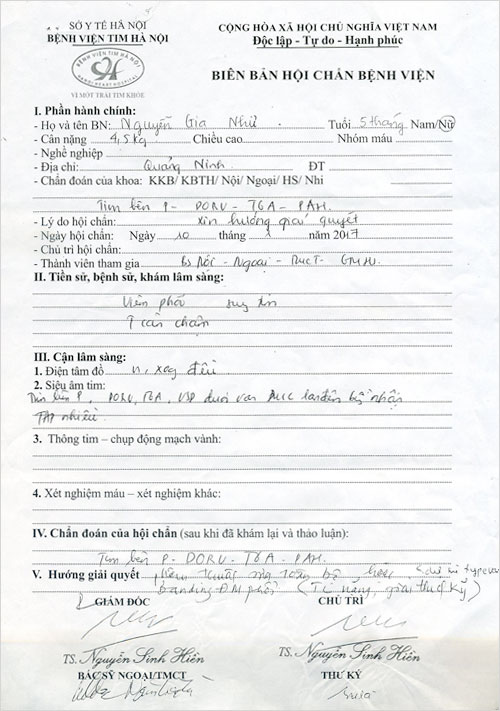 SỞ Y TẾ HÀ NỘI
BỆNH VIỆN TIM HÀ NỘI
BỆNH VIỆN TIM HÀ NỘI
HANOI HEART HOSPITAL
VÌ MỘT TRÁI TIM KHỎE
CỘNG HÒA XÃ HỘI CHỦ NGHĨA VIỆT NAM
Độc lập - Tự do - Hạnh phúc
BIÊN BẢN HỘI CHẨN BỆNH VIỆN
I. Phần hành chính:
- Họ và tên BN: Nguyễn Gia Như Tuổi 5 tháng Nam/Nữ
- Cân nặng 4,5 kg Chiều cao Nhóm máu
- Nghề nghiệp
- Địa chỉ: Quảng Ninh ĐT
- Chẩn đoán của khoa: KKB/ KBTH/ Nội/ Ngoại/ HS/ Nhi
Tim bên P - DORV - TGA - PAH.
- Lý do hội chẩn: xin hướng giải quyết
- Ngày hội chẩn: Ngày 10 tháng 1 năm 2017
- Chủ trì hội chẩn:
- Thành viên tham gia Bs Nội - Ngoại -
II. Tiền sử, bệnh sử, khám lâm sàng:
Viêm phổi suy
cân chậm
III. Cận lâm sàng:
1. Điện tâm đồ xoang đều
2. Siêu âm tim:
Tim bên P, DORV, TGA, VSD dưới van
nhiều.
3. Thông tim – chụp động mạch vành:
4. Xét nghiệm máu – xét nghiệm khác:
IV. Chẩn đoán của hội chẩn (sau khi đã khám lại và thảo luận):
Tim bên P - DORV - TGA - PAH.
V. Hướng giải quyết
banding ĐM phổi (TL nặng, giải thích kỹ)
GIÁM ĐỐC CHỦ TRÌ
TS. Nguyễn Sinh Hiền TS. Nguyễn Sinh Hiền
BÁC SỸ NGOẠI/TMCT THƯ KÝ